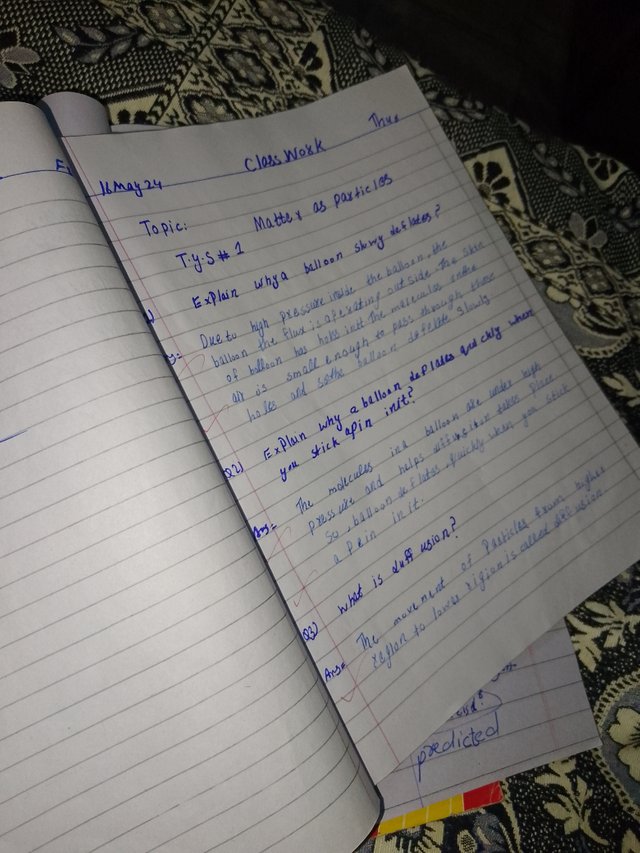 Class Work
Thu.
16 May 24
Topic: Matter as particles
T.y.S # 1
Explain why a balloon slowy deflates?
Due to high pressure inside the balloon, the
balloon the flux is operating outside. The skin
of balloon has holes in it. The molecules in the
air is small enough to pass through these
holes and so the balloon deflate slowly
Q2) Explain why a balloon deflates quickly when
you stick a pin in it?
Ans= The molecules in a balloon are under high
pressure and helps diffusion taken place
So, balloon deflates quickly when you stick
a pein in it.
Q3) What is duffusion?
Ans= The movement of particles from higher
region to lower rigion is called diffusion
predicted